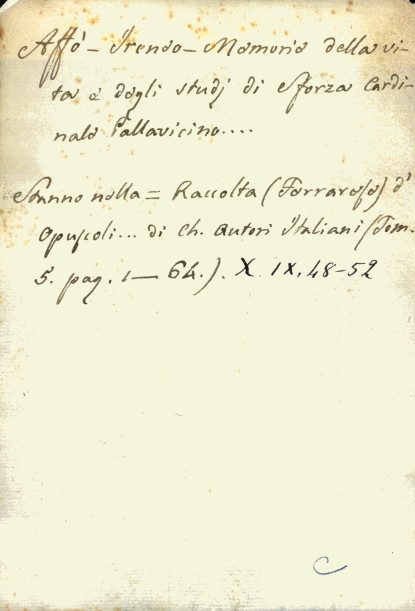 Affò - Ireneo - Memorie della vi-
ta e degli studj di Sforza Cardi-
nale Pallavicino....
Stanno nella = Raccolta (Ferrarese) d'
Opuscoli... di Ch. Autori Italiani (Tom.
5. pag. 1 — 64.) X. IX, 48-52
C